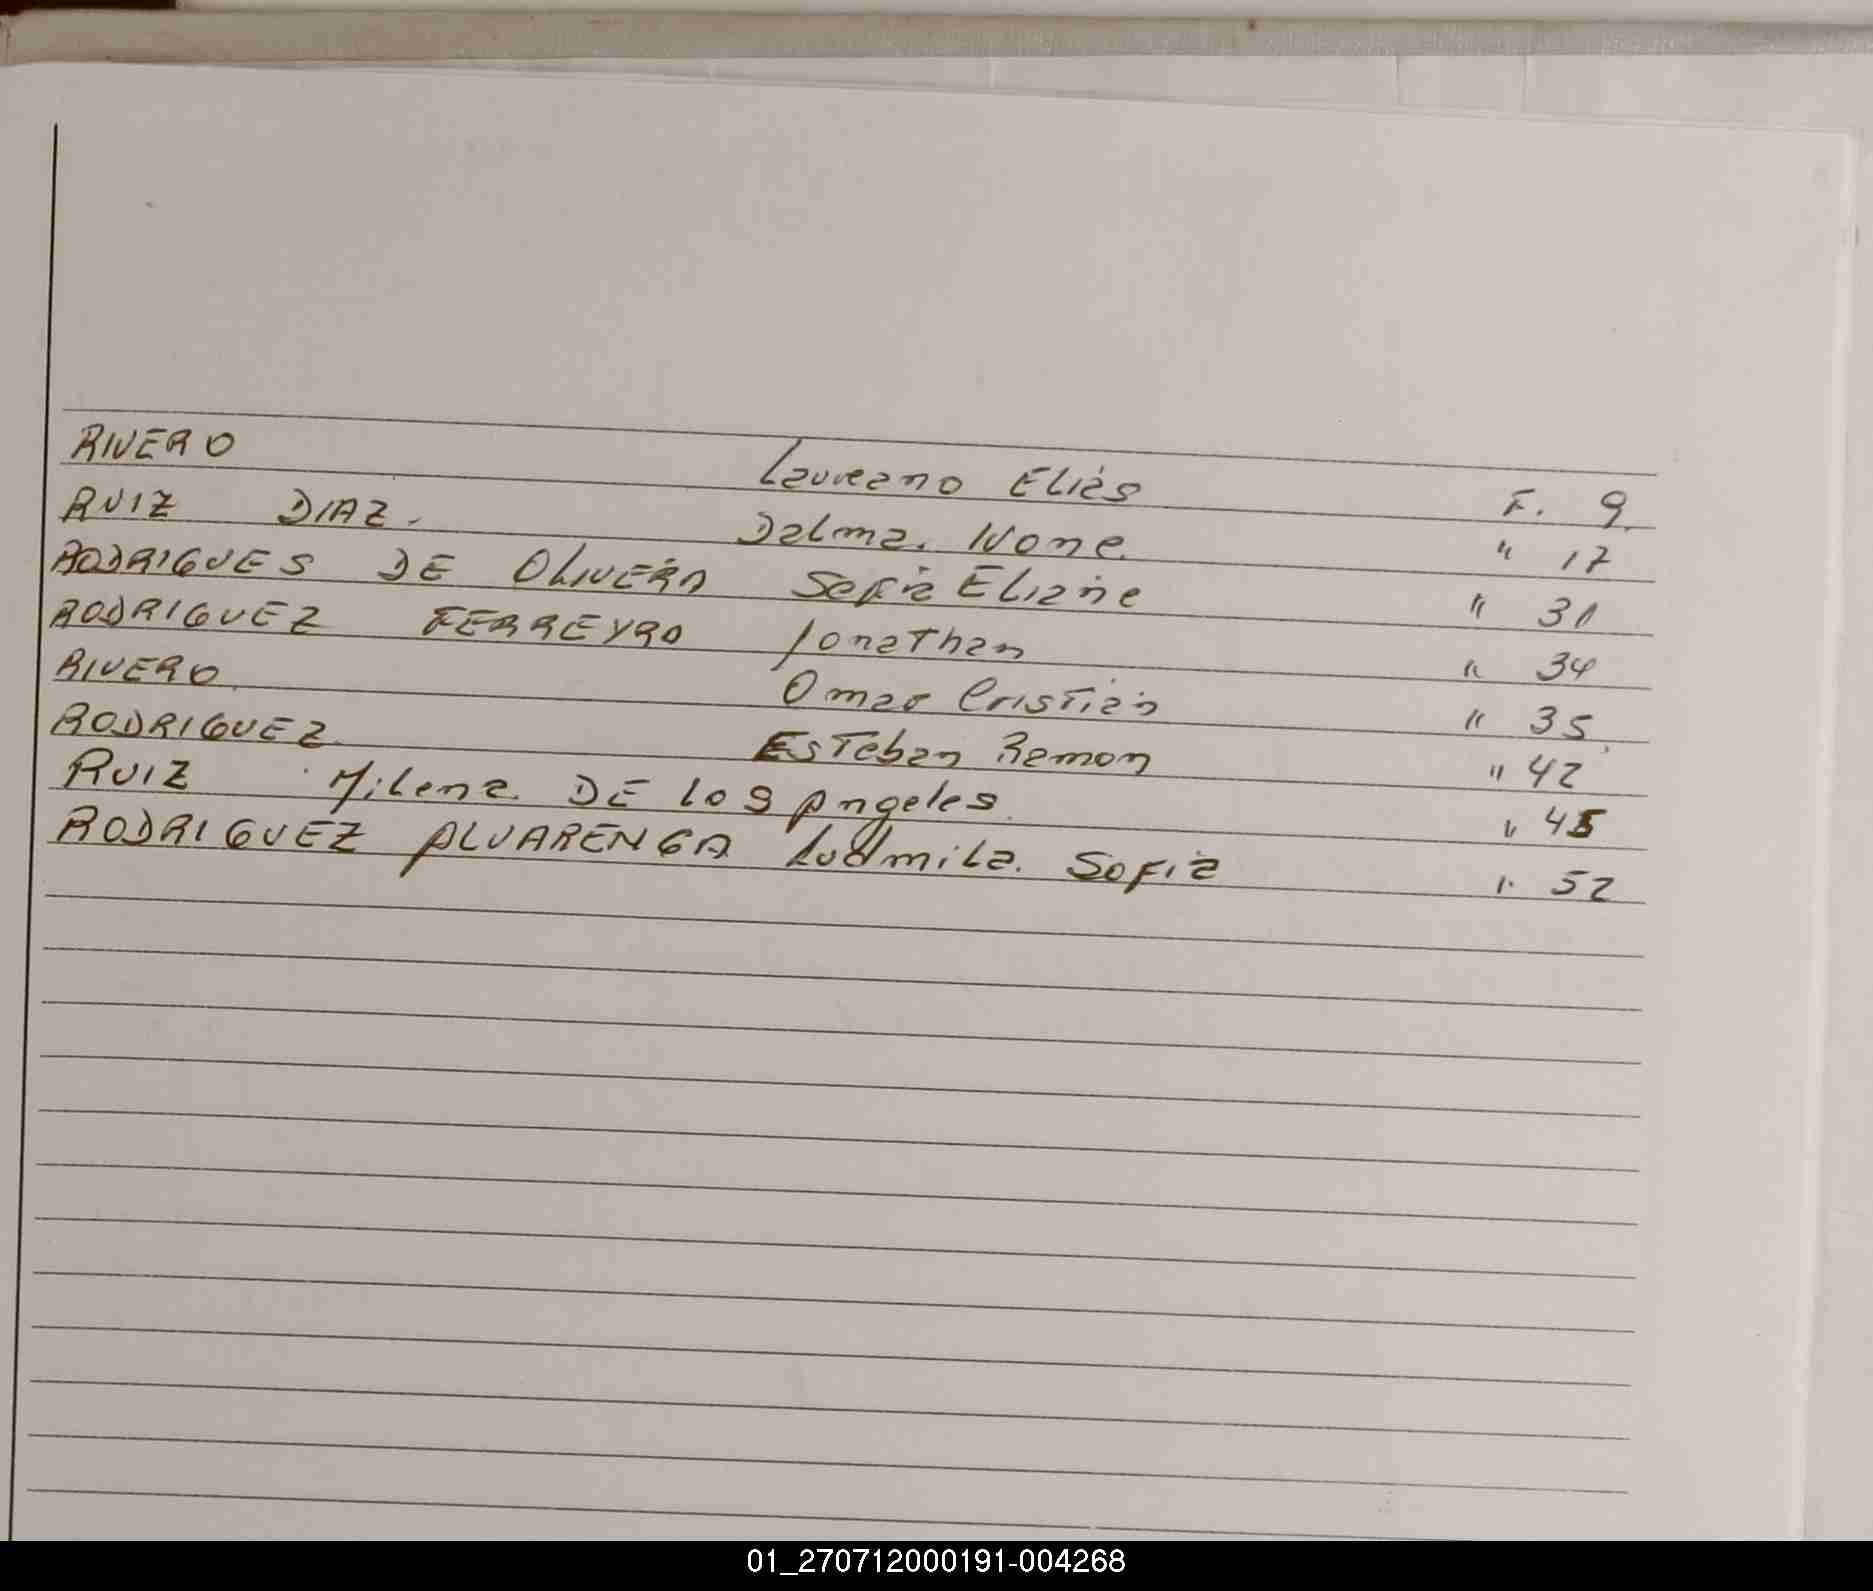 RIVERO Laureano Elías F. 9.
RUIZ DIAZ. Dalma. Ivone. " 17
RODRIGUES DE OLIVERA Sofia Eliane " 31
RODRIGUEZ FERREYRO Jonathan " 34
RIVERO. Omar Cristian " 35.
RODRIGUEZ. Esteban Ramon " 42
RUIZ Milena. DE los Angeles. " 45
RODRIGUEZ ALVARENGA Ludmila. Sofia " 52
01_270712000191-004268